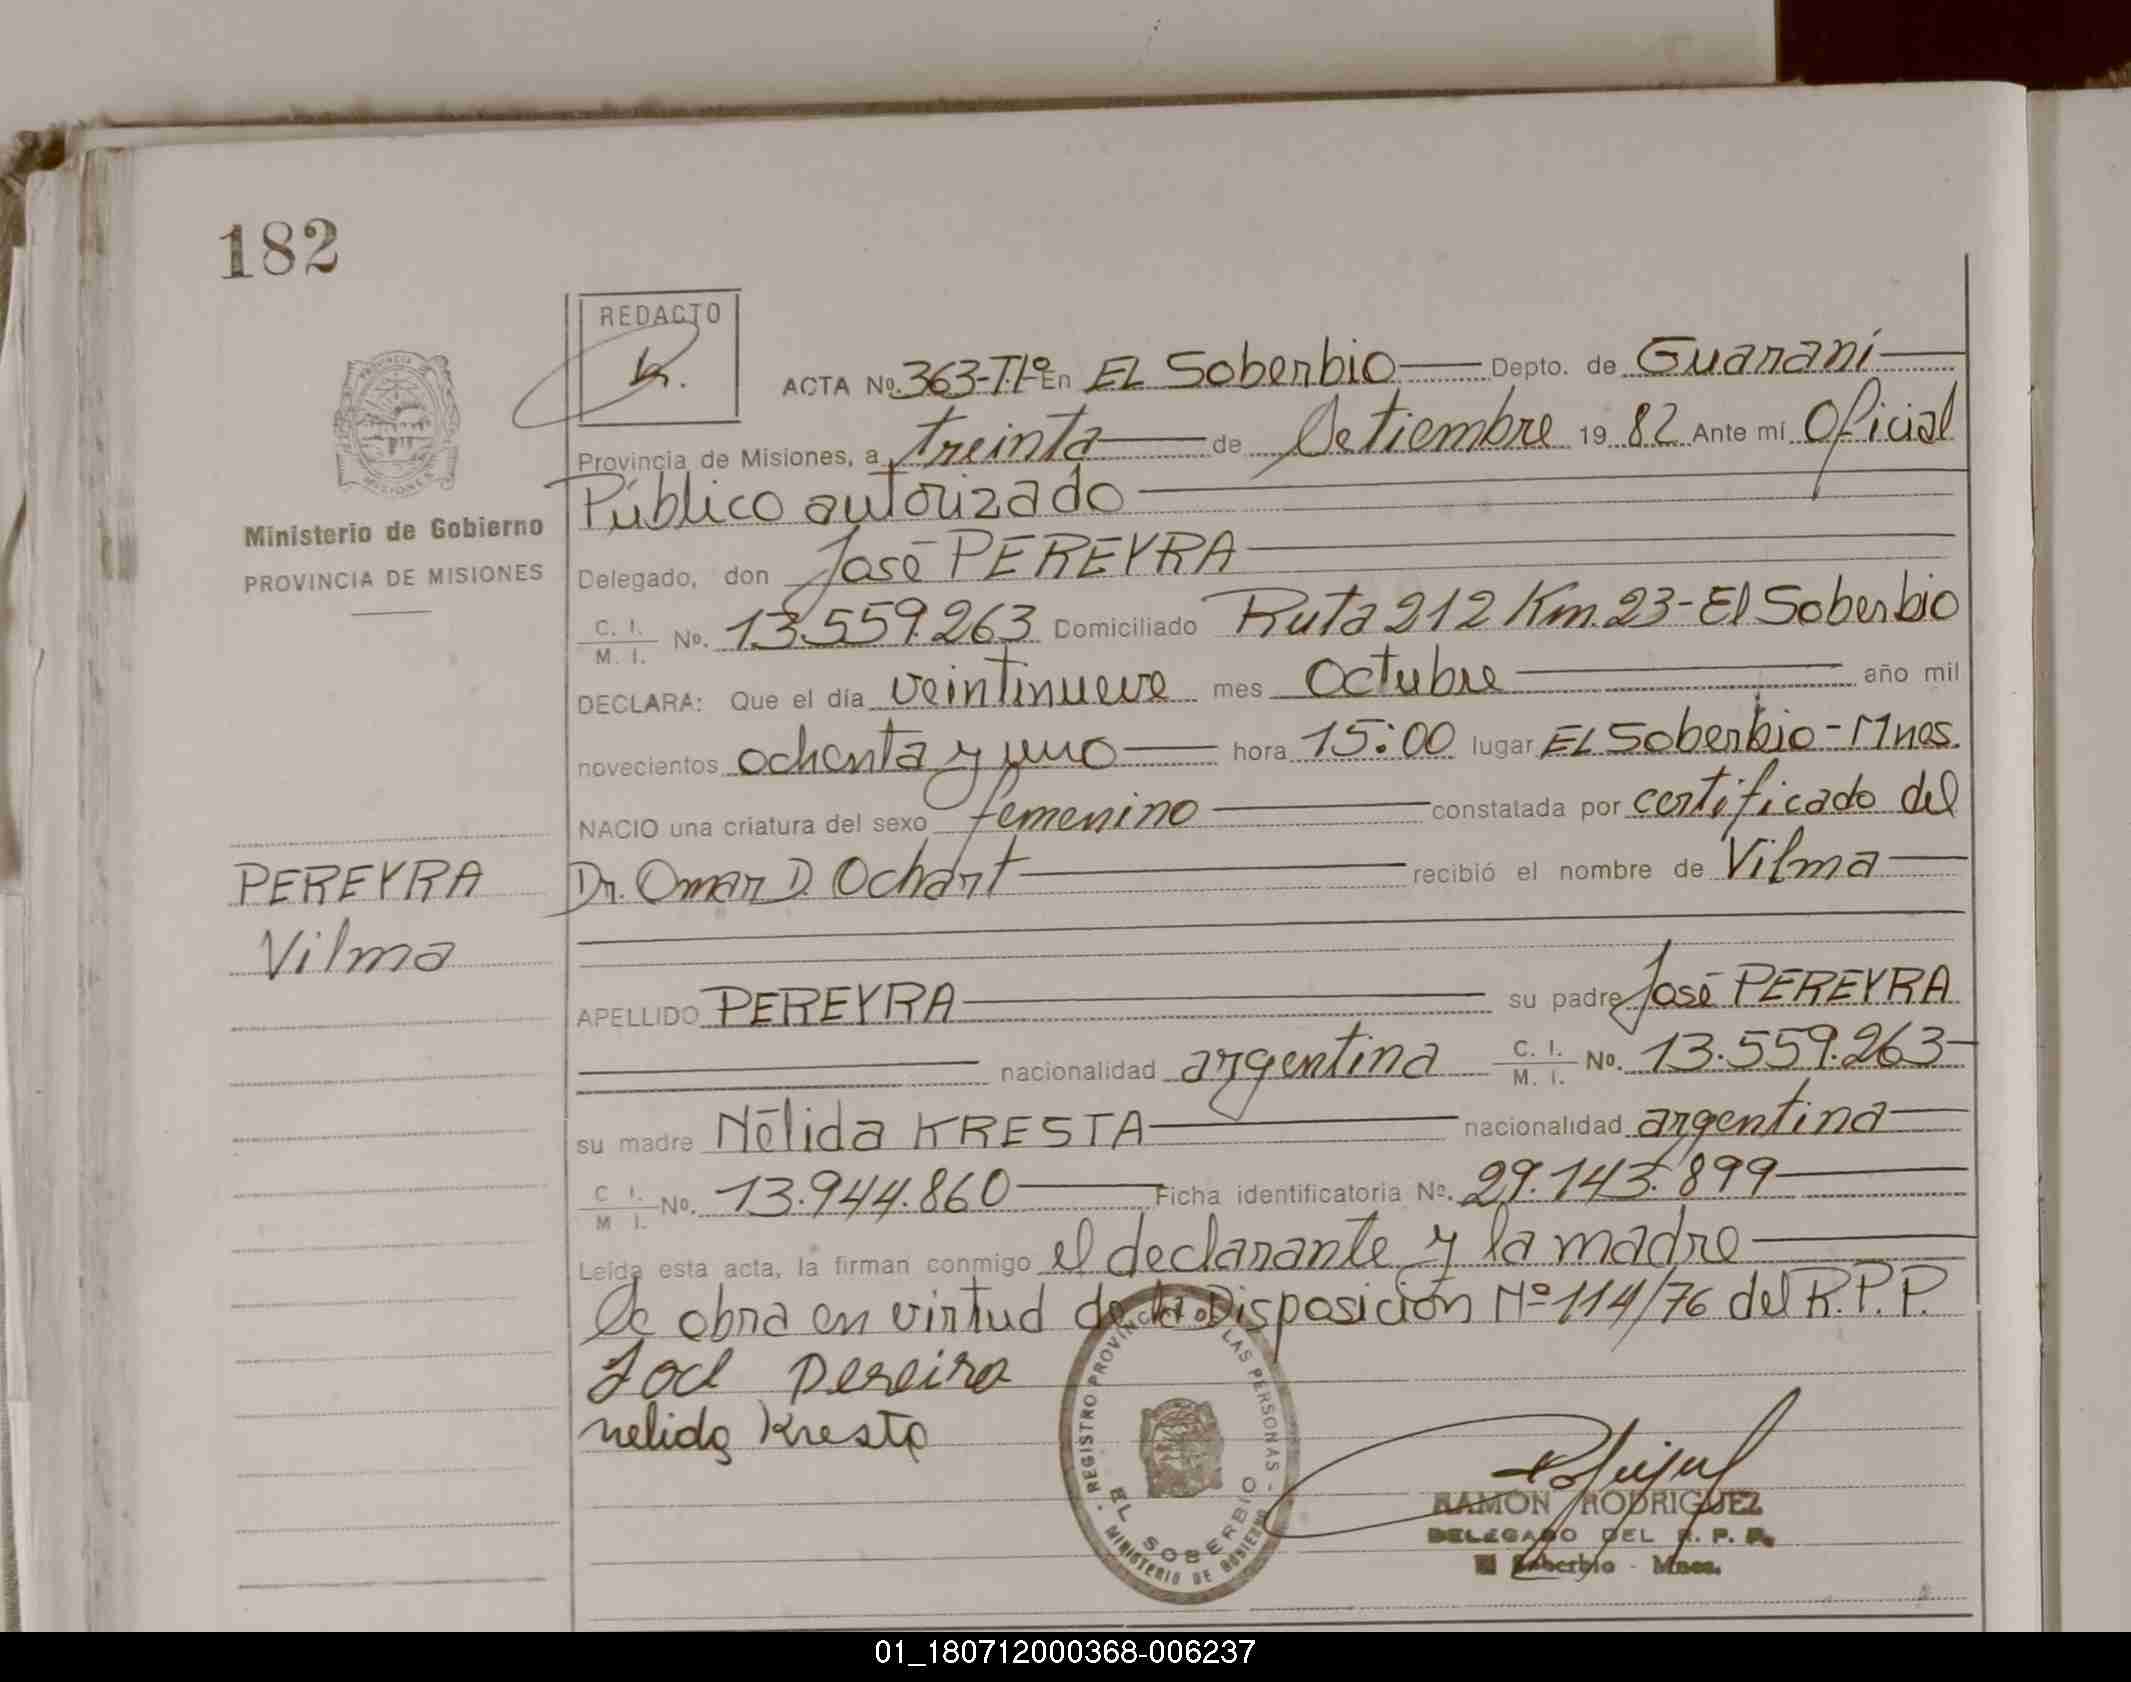 182
REDACTO
K.
ACTA No. 363-T.I-º En EL Soberbio Depto. de Guaraní
Provincia de Misiones, a treinta de Setiembre 1982 Ante mí Oficial
Público autorizado
Ministerio de Gobierno
PROVINCIA DE MISIONES
Delegado, don José PEREYRA
C. I. / M. I. No. 13.559.263 Domiciliado Ruta 212 Km. 23-El Soberbio
DECLARA: Que el día veintinueve mes Octubre año mil
novecientos ochenta y uno hora 15:00 lugar EL Soberbio-Mnes.
NACIO una criatura del sexo femenino constatada por certificado del
PEREYRA
Vilma
Dr. Omar D. Ochart recibió el nombre de Vilma
APELLIDO PEREYRA su padre José PEREYRA
nacionalidad argentina C. I. / M. I. No. 13.559.263
su madre Nélida KRESTA nacionalidad argentina
C I. / M I. No. 13.944.860 Ficha identificatoria No. 29.143.899
Leída esta acta, la firman conmigo el declarante y la madre
Se obra en virtud de la Disposición Nº 114/76 del R.P.P.
Pereira
nelida Kresta
REGISTRO PROVINCIAL DE LAS PERSONAS
EL SOBERBIO
MINISTERIO DE GOBIERNO
RAMON RODRIGUEZ
DELEGADO DEL R. P. P.
El Soberbio - Mnes.
01_180712000368-006237